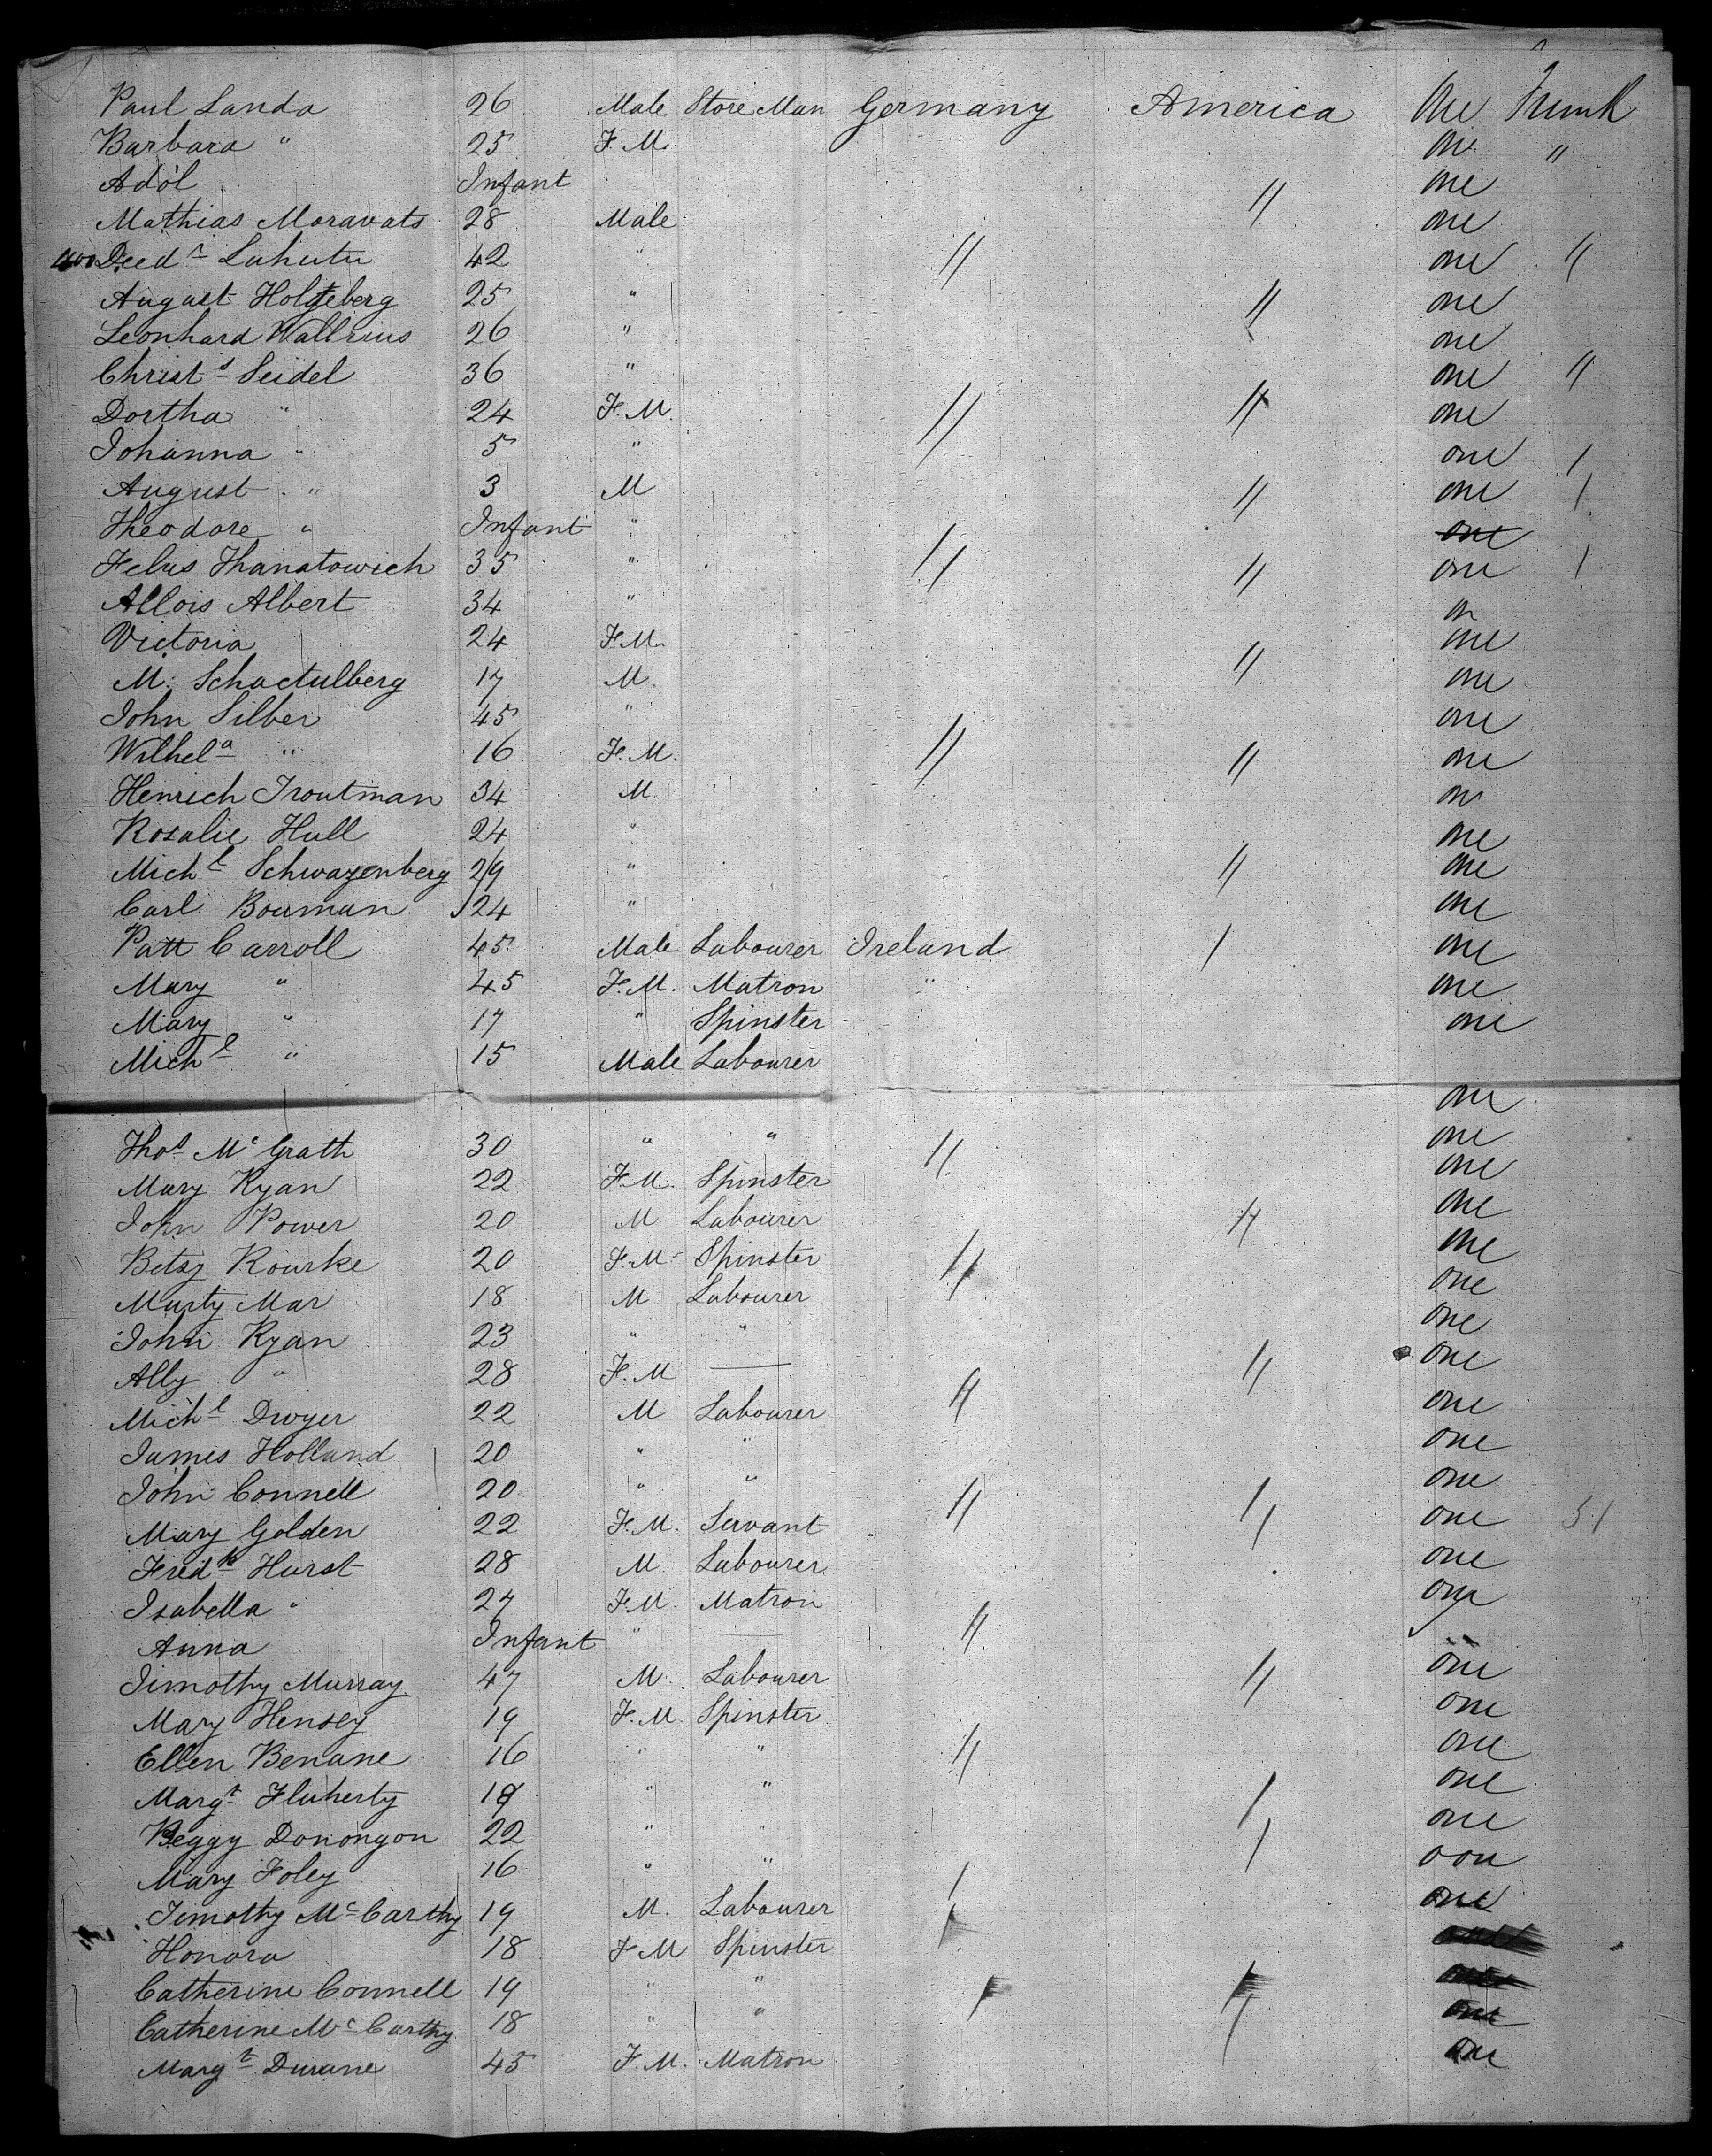 Paul Landa 26 Male Store Man Germany America One Trunk
Barbara " 25 F.M. One "
Adol Infant one
Mathias Moravats 28 Male " one
42 " " one "
August 25 " " one
Leonhard Wallrius 26 " one
Christn Seidel 36 " one "
Dortha " 24 F.M. " " one
Johanna " 5 " one /
August " 3 M " one /
Theodore " Infant " one
Felus Thanatowich 35 " " " one /
Allois Albert 34 " on
Victoria 24 F.M. one
M. Schactulberg 17 M. " one
John Silber 45 " one
Wilhela " 16 F.M. " " one
Henrich Troutman 34 M. on
Rosalie Hull 24 " one
Michl Schwazenberg 29 " " one
Carl Bouman 24 " one
Patt Carroll 45 Male Labourer Ireland / one
Mary " 45 F.M. Matron " one
Mary " 17 " Spinster one
Michl " 15 Male Labourer
one
Thos McGrath 30 " " " one
Mary Ryan 22 F.M. Spinster one
John Power 20 M Labourer " one
Betsy Rourke 20 F.M. Spinster " one
Murty Mar 18 M Labourer one
John Ryan 23 " " one
Ally " 28 F.M — " one
Michl Dwyer 22 M Labourer " one
James Holland 20 " " one
John Connell 20 " " one
Mary Golden 22 F.M. Servant " " one 51
Fredk Hurst 28 M Labourer one
Isabella " 27 F.M. Matron one
Anna Infant " — "
Timothy Murray 47 M. Labourer " one
Mary Hensey 19 F.M. Spinster one
Ellen Benane 16 " " " one
Margt Fluherty 19 " " / one
Peggy Donongon 22 " " / one
Mary Foley 16 " " / oon
Timothy McCarthy 19 M. Labourer / one
Honora 18 F.M Spinster one
Catherine Connell 19 " " / / one
Catherine McCarthy 18 " " / one
Margt Durane 45 F.M. Matron one